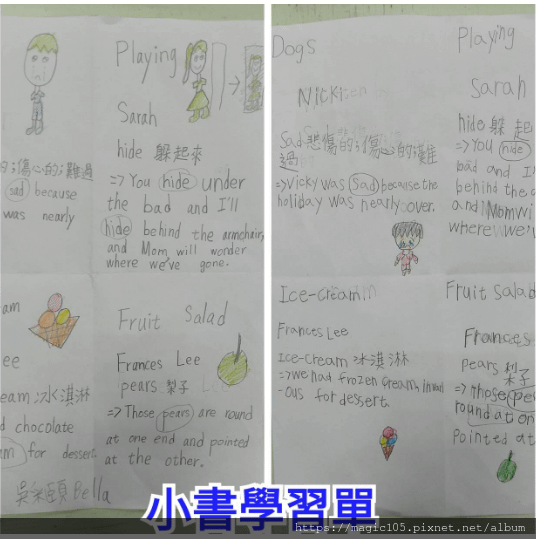 Playing
Sarah
hide 躲起來
=> You hide under
the bad and I'll
hide behind the armchair,
and Mom will wonder
where we've gone.
的傷心的難過
sad because
was nearly
Fruit Salad
Frances Lee
pears 梨子
=> Those pears are round
at one end and pointed
at the other.
eam
ee
eam 冰淇淋
d chocolate
am for dessert.
Bella
Dogs
sad 悲傷的傷心的難
過
=> Vicky was sad because the
holiday was nearly over.
Playing
Sarah
hide 躲起
=> You hide
bad and I'
behind the a
and Mom wi
where we'v
Ice-cream
Frances Lee
Ice-cream 冰淇淋
=> we had frozen cream
-ous for dessert.
Fruit Salad
Frances
pears 梨子
=> Those pe
round at on
pointed at
小書學習單
https://magic105.pixnet.net/album